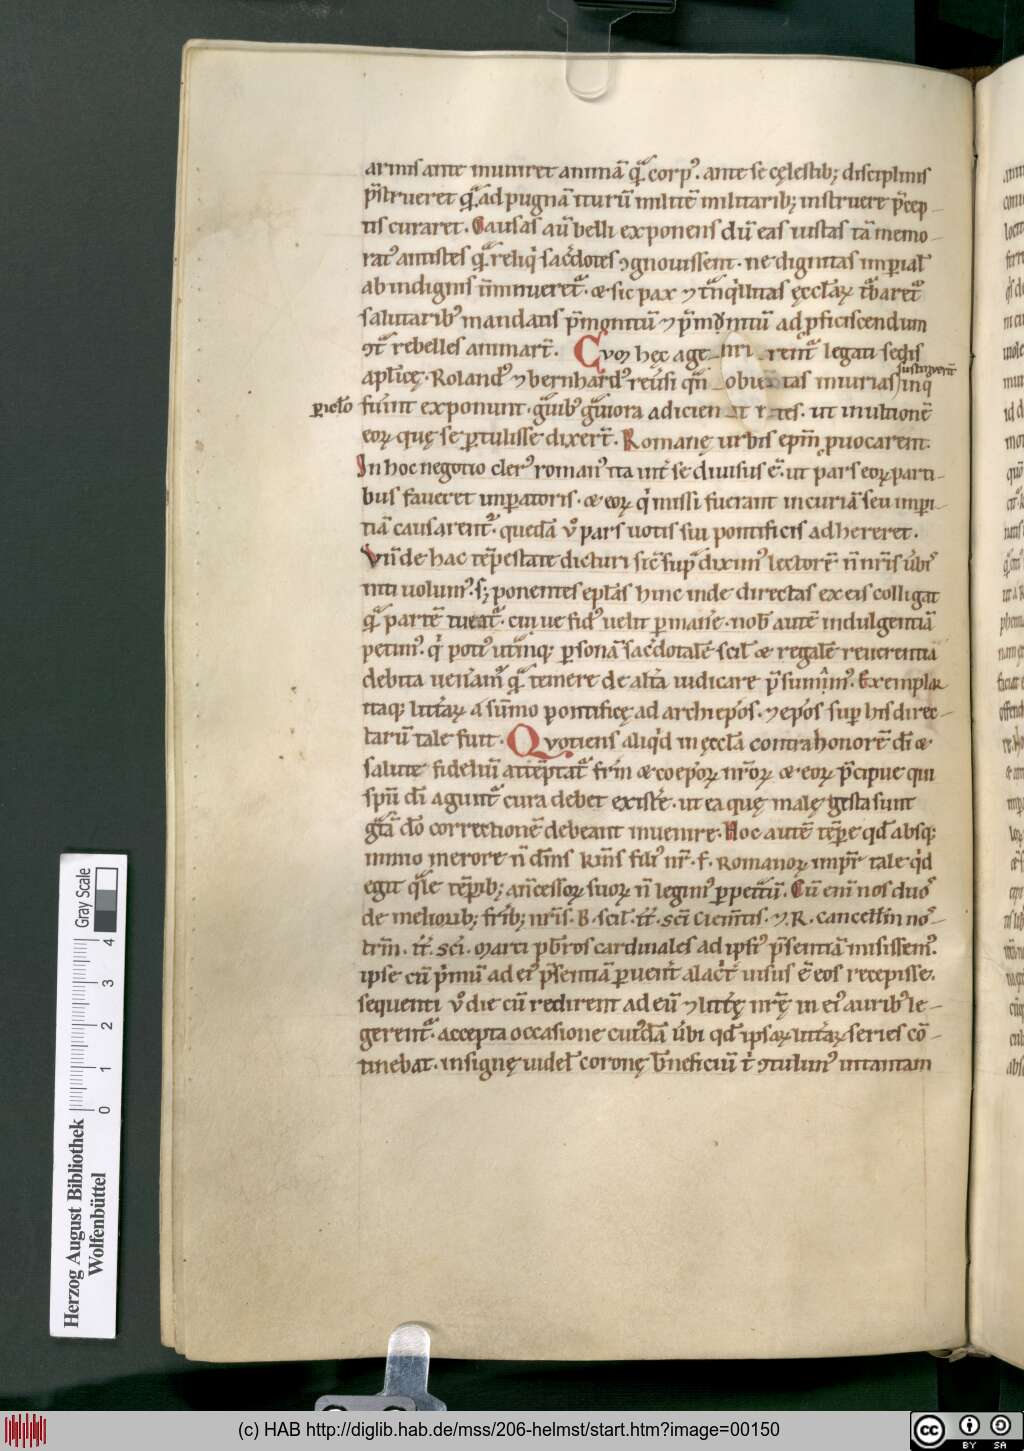 armis ante muniret animā q̄ corp᷒. ante se cęlestib; disciplinis
p̄strueret q̄ ad pugnā iturū militē militarib; instruere p̄cep-
tis curaret. Causas aū belli exponens dū eas iustas tā memo-
rat᷒ antistes q̄ reliqͥ sac̄dotes ꝯgnouissent. ne dignitas imp̄ial̄
ab indignis īminueret᷑. & sic pax ⁊ t̄nqͥllitas ęccl̄arꝫ t᷑baret᷑
salutarib᷒ mandatis p̄monitū ⁊ p̄munitū ad p̄ficiscendum
ꝯt̄ rebelles animart̄. Cum hęc age-
nti-
rent᷑ legati sedis
apl̄icę. Roland᷒ ⁊ bernhard᷒ reūsi
obui
tas iniurias
inq
sustinuerint
ꝑic̄lo
fūint exponunt. g᷑uib᷒ g᷑uiora adicien
tes. ut in ultionē
eorꝫ quę se ꝑtulisse dixert̄. Romanę urbis epm̄ ꝓuocarent.
In hoc negotio cler᷒ roman᷒ ita int̄ se diuisus ē. ut pars eorꝫ parti-
bus faueret imꝑatoris. & eorꝫ qͥ missi fuerant incuriā seu imꝑi-
tiā causarent᷑. quedā v̊ pars uotis sui pontificis adhereret.
Vn̄ de hac tēpestate dicturi sic̄ sup̄ dixim᷒ lectorē n̄ nr̄is ūbis
inti uolum᷒. s; ponentes epl̄as hinc inde directas ex eis colligat
q̄ partē tueat᷑. cui ue fid᷒ uelit ꝑmanēre. nob̄ autē indulgentiā
petim᷒. qͥ poti᷒ ut᷑mq; ꝑsonā sac̄dotalē scil̄ & regalē reuerentiā
debita uenam᷑ q̄ temere de alt̄a iudicare p̄sumim᷒. Exemplar
itaq; litt̄arꝫ a sūmo pontificę ad archiep̄os. ⁊ ep̄os sup̄ his direc-
tarū tale fuit. Quotiens aliqͥd in ęccl̄a contra honorē dī &
salutē fideliū attēptat᷑ fr̄m & coep̄orꝫ nr̄orꝫ & eorꝫ p̄cipue qui
spū dī agunt᷑ cura debet existe̊. ut ea quę malę gesta sunt
g᷑tā dō correctionē debeant inuenire. Hoc autē tēp̄e qd̄ absq;
nimio merore n̄ dm̄s km̄s fili᷒ nr̄. f. Romanorꝫ imp̄r tale qͥd
egit q̄le tēp̄ib; an̄cessorꝫ suorꝫ n̄ legim᷒ ꝑpet᷑tū. Cū enī nos duos
de meliorib; fr̄ib; nr̄is. B. scil̄. tt̄. sc̄i Clem̄tis. ⁊ R. cancell̄m no᷒-
trm̄. tt̄. sc̄i. marci pb̄ros cardinales ad ipsi᷒ p̄sentiā misissem᷒.
ipse cū p̄mū ad ei᷒ p̄sentiā ꝑuent̄ alac̄t̄ uisus ē eos recepisse.
sequenti v̊ die cū redirent ad eū ⁊ litt̄ę nr̄ę in ei᷒ aurib᷒ le-
gerent᷑. accepta occasione cui᷒dā ūbi qd̄ ipsarꝫ litt̄arꝫ series cō-
tinebat. insignę uidel̄ coronę b̄neficiū t̄ ꝯtulim᷒ intantam
Gray Scale
4
3
2
1
0
Herzog August Bibliothek
Wolfenbüttel
(c) HAB http://diglib.hab.de/mss/206-helmst/start.htm?image=00150
cc
BY
SA